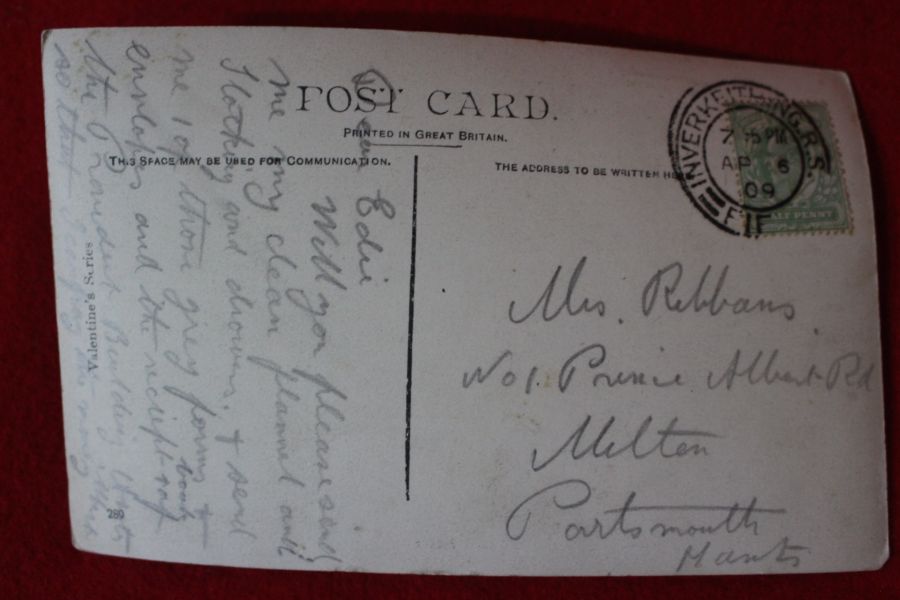 POST CARD.
PRINTED IN GREAT BRITAIN.
THIS SPACE MAY BE USED FOR COMMUNICATION.
THE ADDRESS TO BE WRITTEN HE
INVERKEITHING R.S.
7 5 PM
AP 6
09
FIF
HALF PENNY
Mrs. Ribbans.
No 1. Prince Albert Rd
Milton
Portsmouth
Hants
Dear Edie
Will you please send
me my clean flannel and
Stocking and drowers, & send
me 1 of those grey forms &
envelopes and the reciept book
the Provident Building
so that
Valentine's Series
289